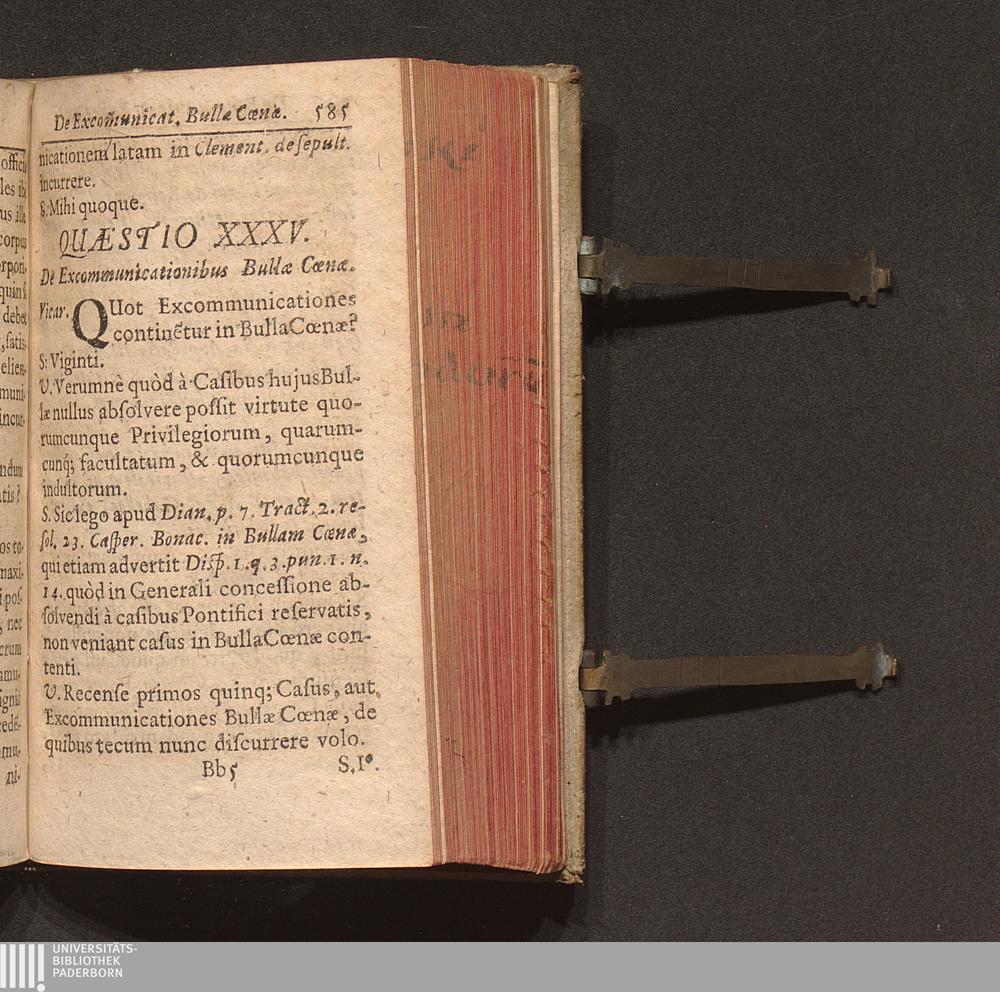 De Excom̃unicat. Bullæ Cœnæ. 585
nicationem latam in Clement. de ſepult.
incurrere.
S. Mihi quoque.
QUÆSTIO XXXV.
De Excommunicationibus Bullæ Cœnæ.
Vicar. QUot Excommunicationes
continētur in Bulla Cœnæ?
S: Viginti.
V. Verumnè quòd à Caſibus hujus Bul-
læ nullus abſolvere poſſit virtute quo-
rumcunque Privilegiorum, quarum-
cunq; facultatum, & quorumcunque
indultorum.
S. Sic lego apud Dian. p. 7. Tract. 2. re-
ſol. 23. Caſper. Bonac. in Bullam Cœnæ,
qui etiam advertit Diſp. 1. q. 3. pun. 1. n.
14. quòd in Generali conceſſione ab-
ſolvendi à caſibus Pontifici reſervatis,
non veniant caſus in Bulla Cœnæ con-
tenti.
V. Recenſe primos quinq; Caſus, aut
Excommunicationes Bullæ Cœnæ, de
quibus tecum nunc diſcurrere volo.
Bb5 S. I°.
UNIVERSITÄTS-
BIBLIOTHEK
PADERBORN